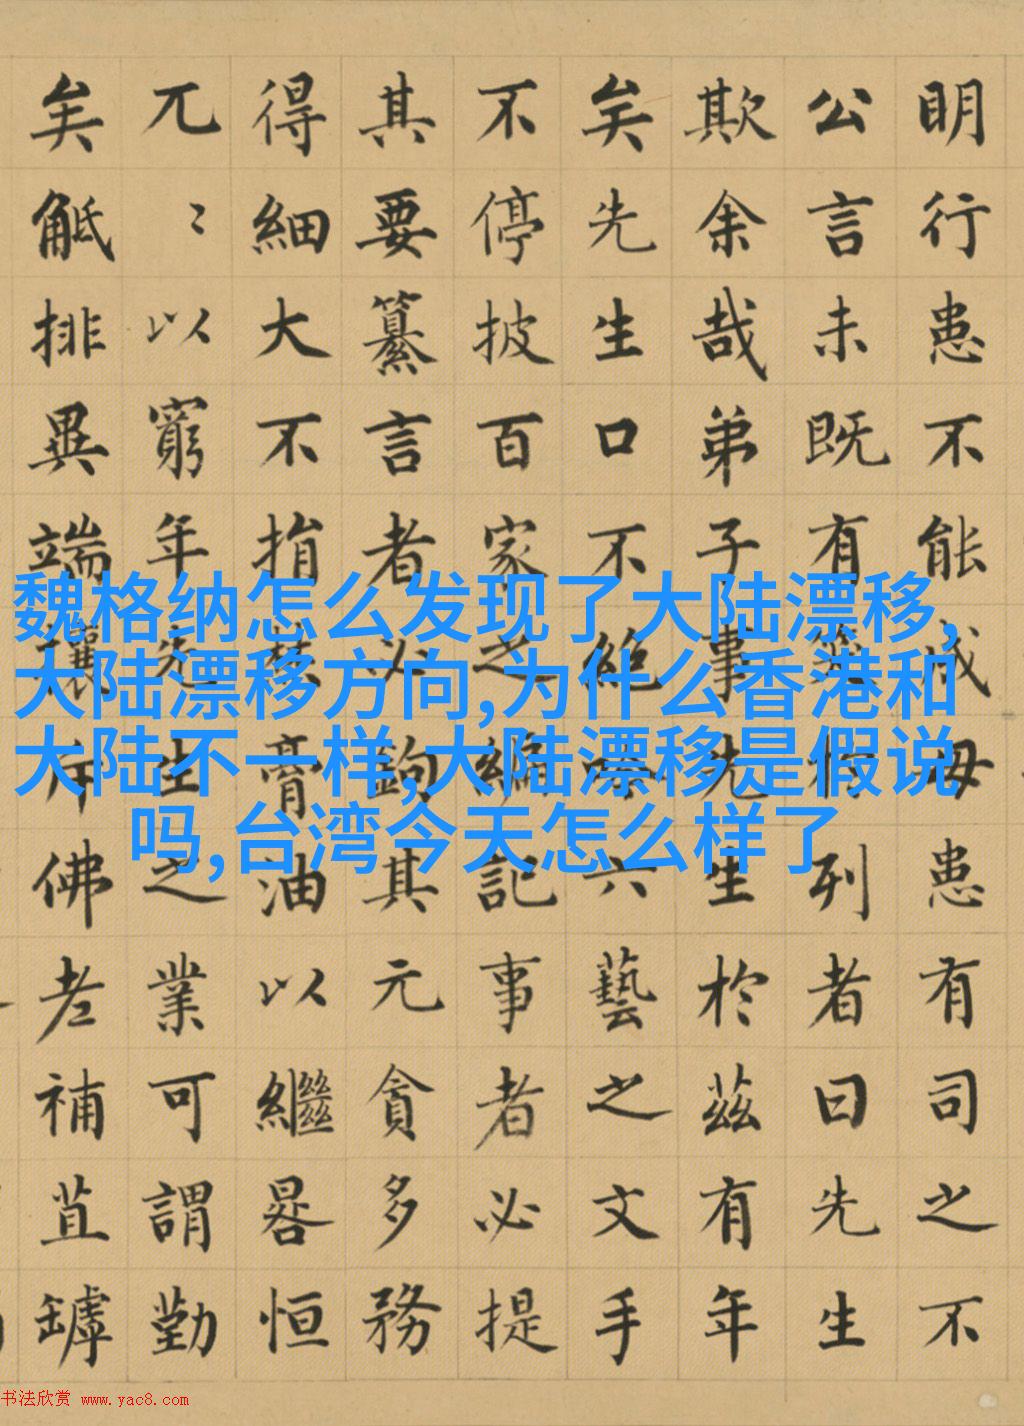 明行患不能成毋患有司之不
公言未既有列者曰先生
欺余哉弟子事先生於茲有年
矣先生口不絶六藝之文手
不停披百家之編記事者必提
其要纂言者必鉤其元貪多務
得細大不捐焚膏油以繼晷恒
兀〻以窮年先生之業可謂勤
矣觝排異端攘斥佛老補苴罅
魏格纳怎么发现了大陆漂移,
大陆漂移方向,为什么香港和
大陆不一样,大陆漂移是假说
吗,台湾今天怎么样了
书法欣赏 www.yac8.com